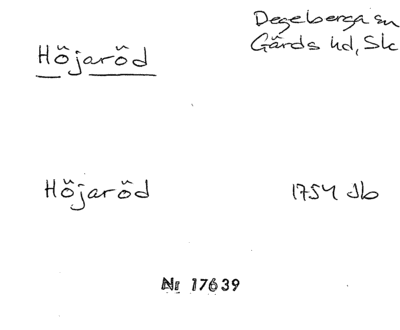 Höjaröd
Degeberga sn
Gärds hd, Sk
Höjaröd
1754 Jb
Nr 17639